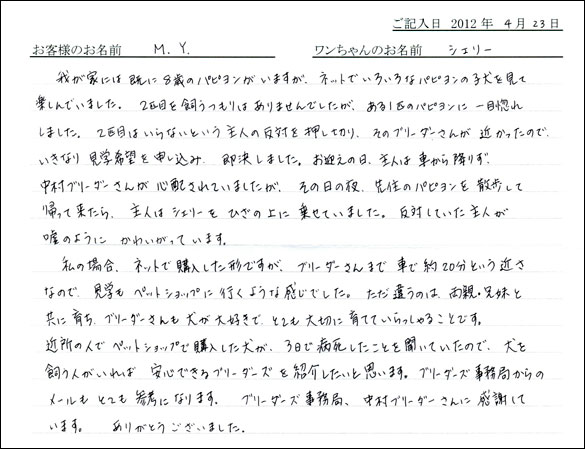 ご記入日 2012 年 4 月 23 日
お客様のお名前 M. Y. ワンちゃんのお名前 シェリー
我が家には既に8歳のパピヨンがいますが、ネットでいろいろなパピヨンの子犬を見て
楽しんでいました。2匹目を飼うつもりはありませんでしたが、ある1匹のパピヨンに一目惚れ
しました。2匹目はいらないという主人の反対を押し切り、そのブリーダーさんが近かったので、
いきなり見学希望を申し込み、即決しました。お迎えの日、主人は車から降りず、
中村ブリーダーさんが心配されていましたが、その日の夜、先住のパピヨンを散歩して
帰って来たら、主人はシェリーをひざの上に乗せていました。反対していた主人が
嘘のようにかわいがっています。
私の場合、ネットで購入した形ですが、ブリーダーさんまで車で約20分という近さ
なので、見学もペットショップに行くような感じでした。ただ違うのは、両親・兄妹と
共に育ち、ブリーダーさんも犬が大好きで、とても大切に育てていらっしゃることです。
近所の人でペットショップで購入した犬が、3日で病死したことを聞いていたので、犬を
飼う人がいれば、安心できるブリーダーズを紹介したいと思います。ブリーダーズ事務局からの
メールもとても参考になります。 ブリーダーズ事務局、中村ブリーダーさんに感謝して
います。 ありがとうございました。